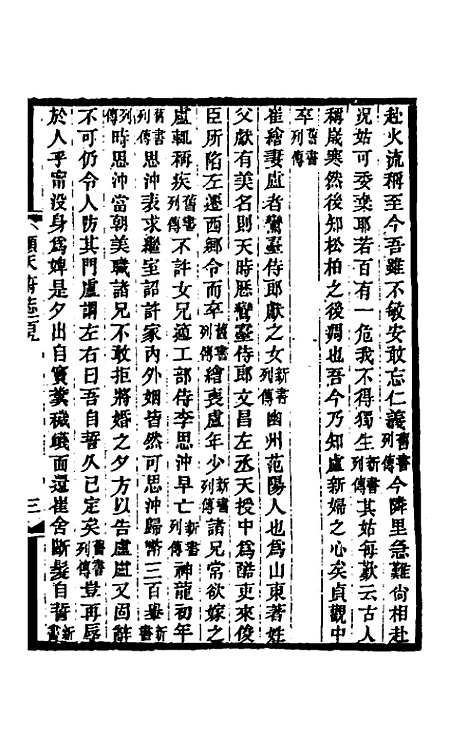 赴火流稱至今吾雖不敏安敢忘仁義舊書列傳今隣里急難尙相赴
况姑可委棄耶若百有一危我不得獨生新書列傳其姑每歎云古人
稱歲寒然後知松柏之後凋也吾今乃知盧新婦之心矣貞觀中
卒舊書列傳
崔繪妻盧者鸞臺侍郎獻之女新書列傳幽州范陽人也爲山東著姓
父獻有美名則天時歷鸞臺侍郎文昌左丞天授中爲酷吏來俊
臣所陷左遷西鄉令而卒舊書列傳繪喪盧年少列傳諸兄常欲嫁之
盧輒稱疾舊書列傳不許女兄適工部侍李思沖早亡新書列傳神龍初年
舊書列傳思沖表求繼室詔許家內外姻皆然可思沖歸幣三百轝新書
列傳時思沖當朝美職諸兄不敢拒將婚之夕方以告盧盧又固辭
不可仍令人防其門盧謂左右曰吾自誓久已定矣舊書列傳豈再辱
於人乎甯沒身爲婢是夕出自竇糞穢蠛面還崔舍斷髮自誓新書
順天府志一百
三